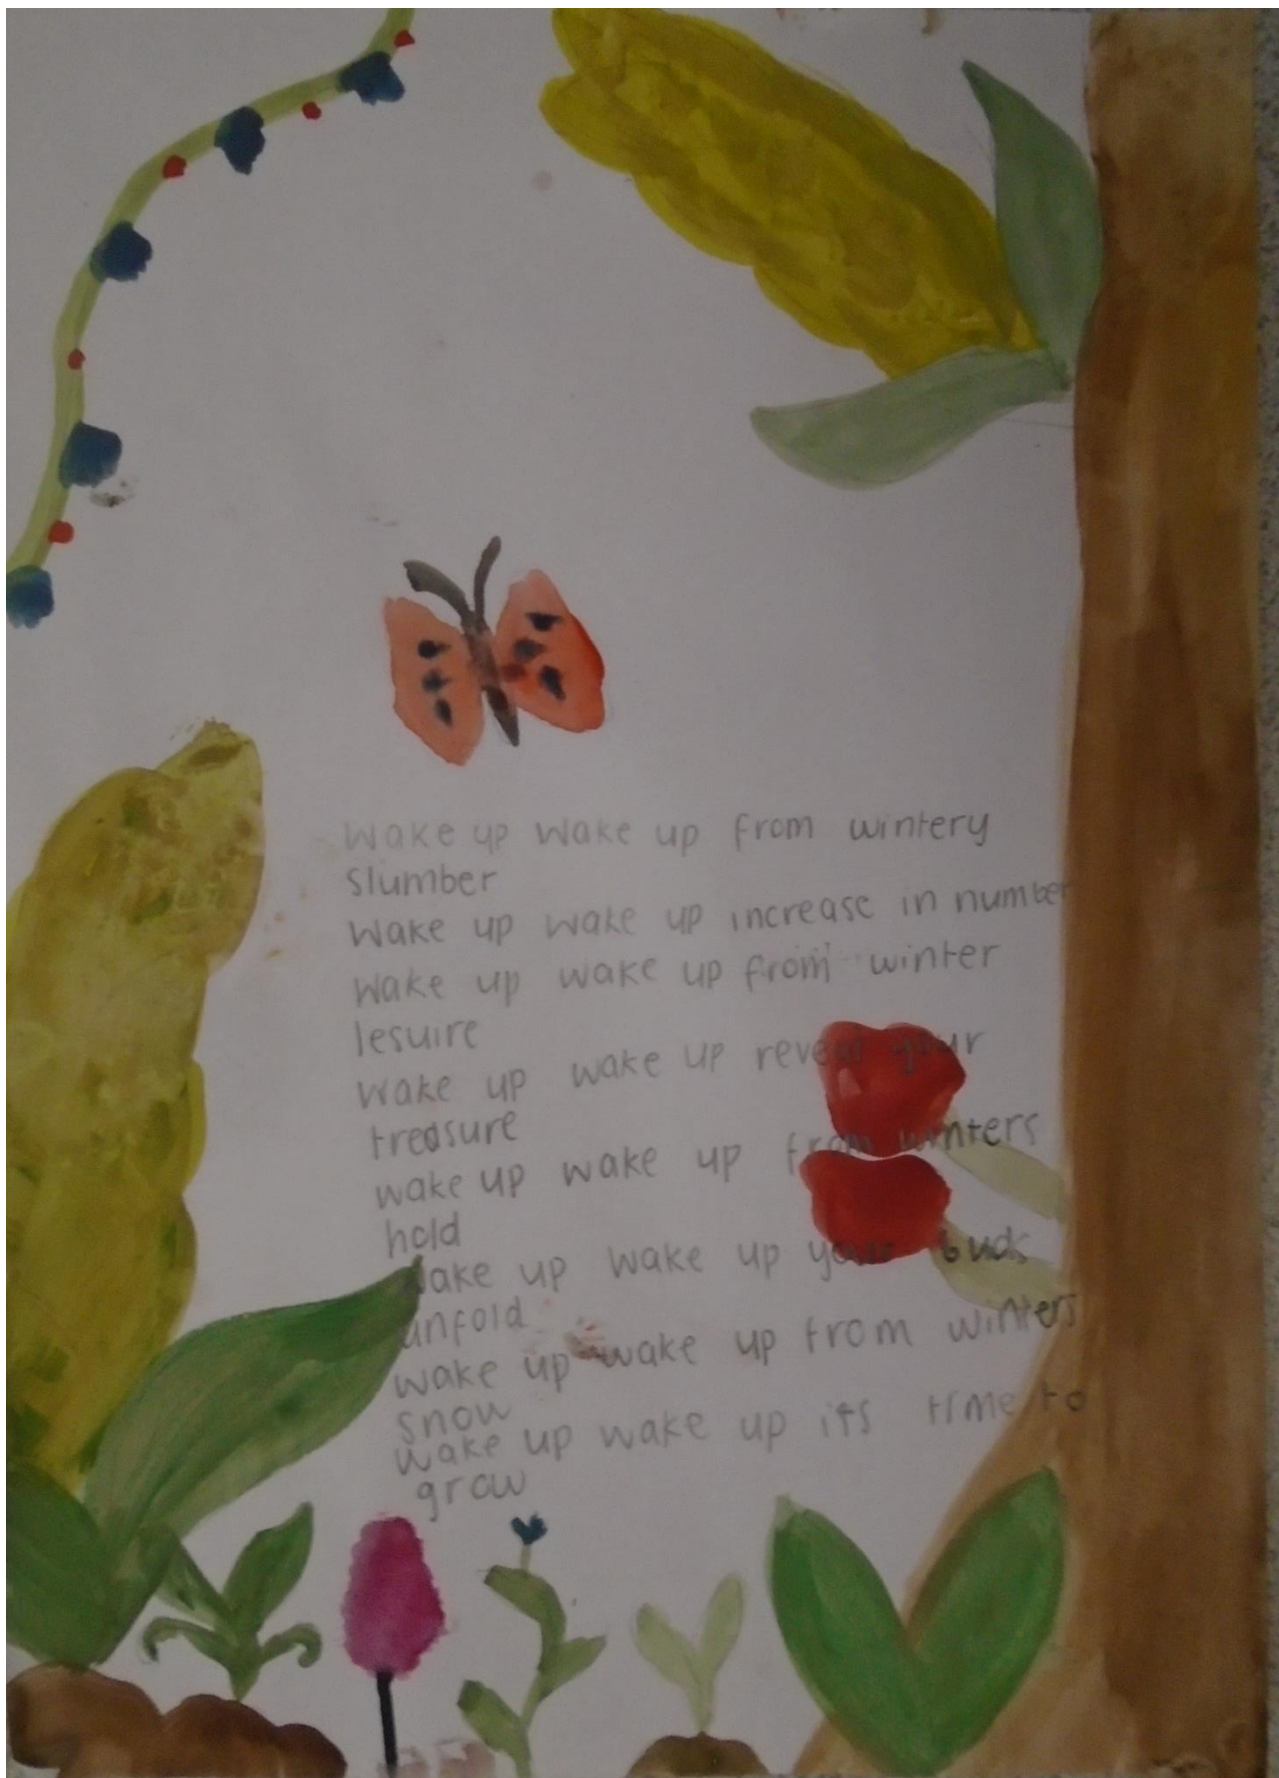 Wake up wake up from wintery
slumber
wake up wake up increase in number
wake up wake up from winter
lesuire
wake up wake up reveal your
treasure
wake up wake up from winters
hold
wake up wake up your buds
unfold
wake up wake up from winters
snow
wake up wake up its time to
grow